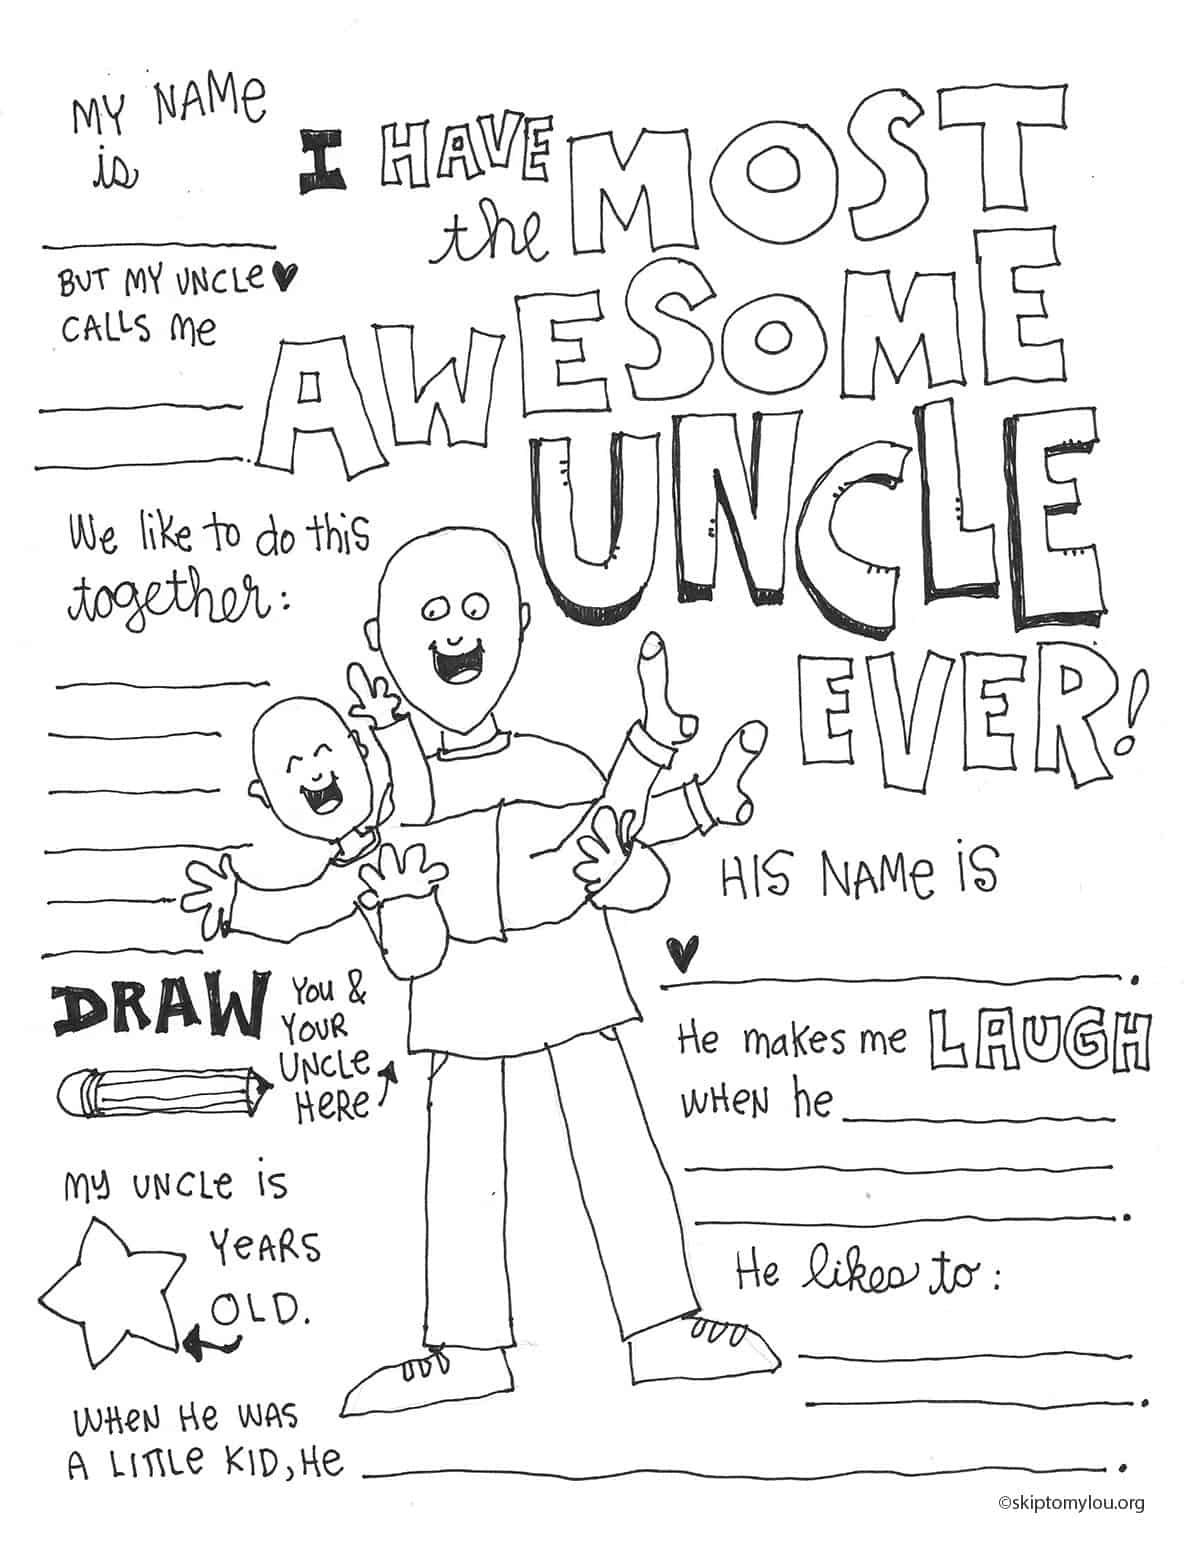 MY NAME
is
BUT MY UNCLE
CALLS Me
I HAVE
the MOST
AWESOME
UNCLE
EVER!
We like to do this
together:
HIS NAMe iS
DRAW
You &
YOUR
UNCLE
HeRe
He makes me LAUGH
WHEN he
MY UNCLe iS
YeARS
OLD.
He likes to:
WHeN He WAS
A LiTTLe KiD, He
©skiptomylou.org